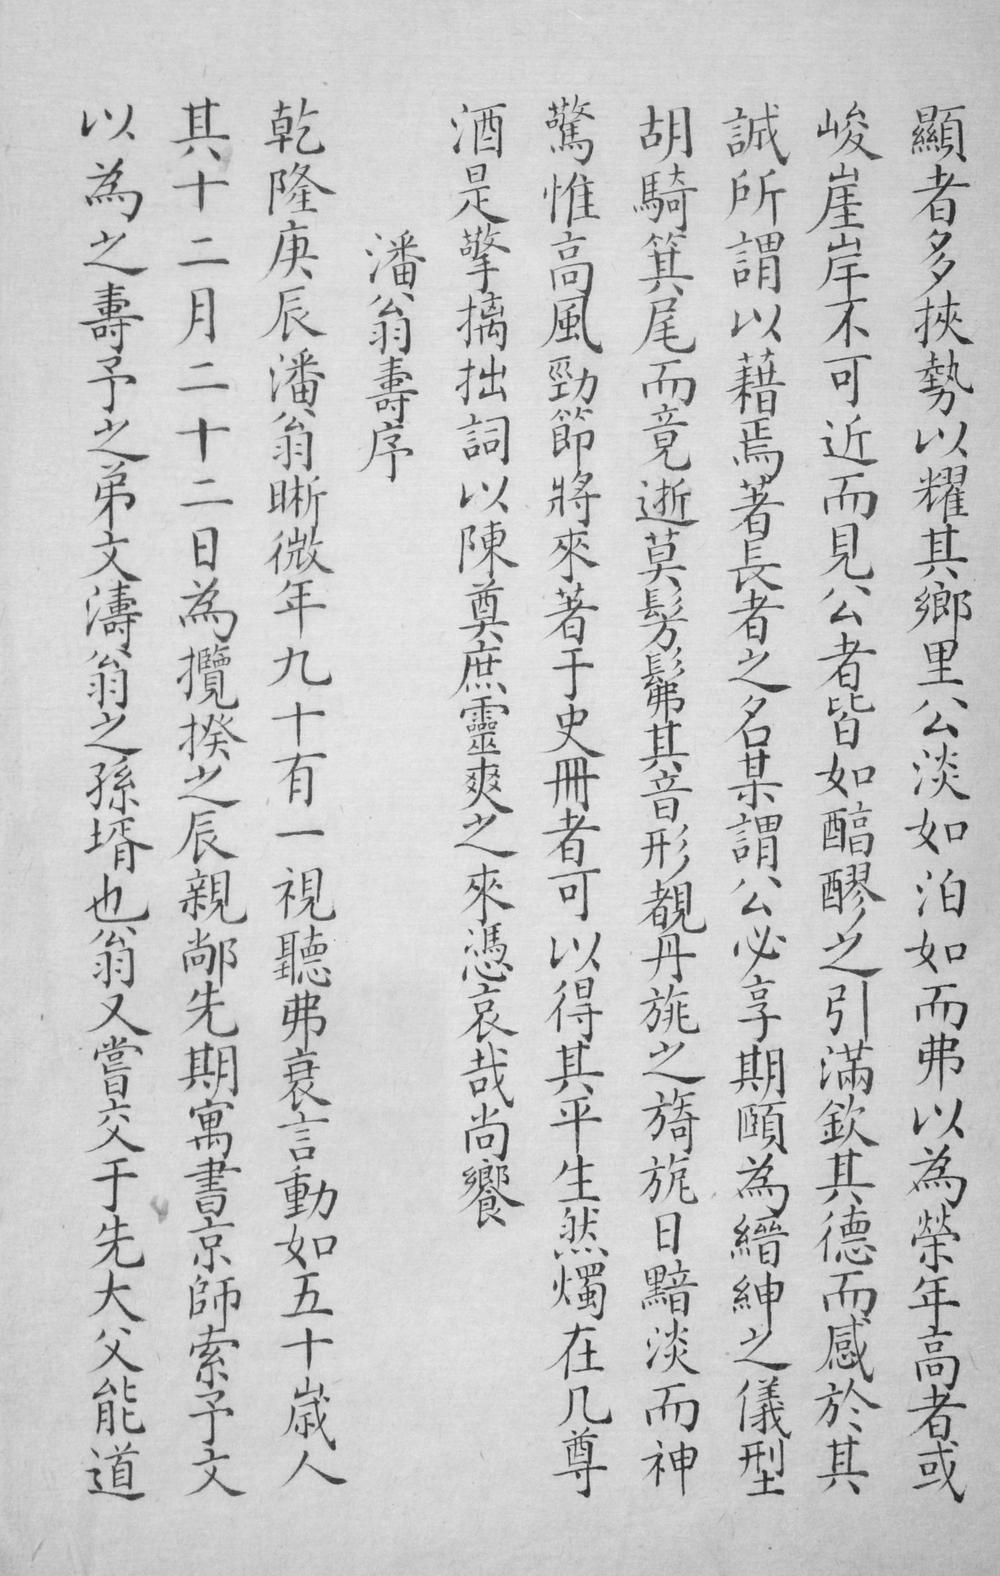 顯者多挾勢以耀其鄉里公淡如泊如而弗以為榮年高者或
峻崖岸不可近而見公者皆如醕醪之引滿欽其德而感於其
誠所謂以藉焉著長者之名某謂公必享期頤為縉紳之儀型
胡騎箕尾而竟逝莫髣髴其音形覩丹旐之旖旎日黯淡而神
驚惟高風勁節將來著于史冊者可以得其平生然燭在几尊
酒是擎摛拙詞以陳奠庶靈爽之來憑哀哉尚饗
潘翁壽序
乾隆庚辰潘翁晰微年九十有一視聽弗衰言動如五十歲人
其十二月二十二日為攬揆之辰親鄰先期寓書京師索予文
以為之壽予之弟文濤翁之孫壻也翁又嘗交于先大父能道